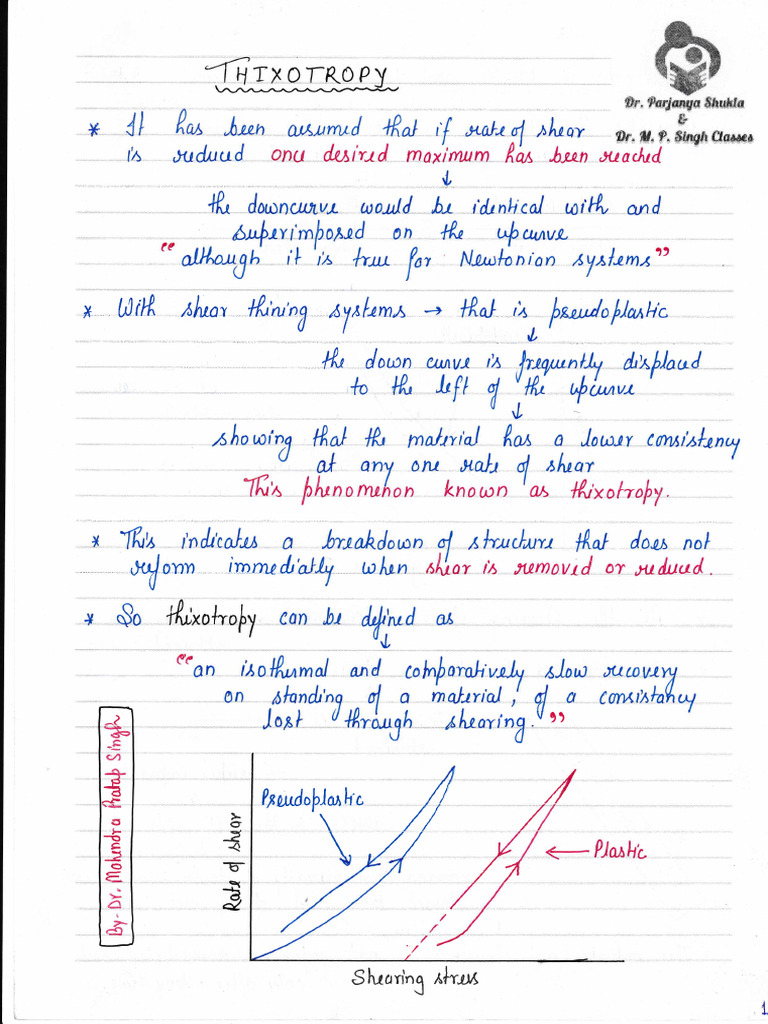 THIXOTROPY
Dr. Parjanya Shukla
&
Dr. M. P. Singh Classes
* It has been assumed that if rate of shear
is reduced once desired maximum has been reached
↓
the downcurve would be identical with and
superimposed on the upcurve
"although it is true for Newtonian systems"
* With shear thining systems → that is pseudoplastic
↓
the down curve is frequently displaced
to the left of the upcurve
↓
showing that the material has a lower consistency
at any one rate of shear
This phenomenon known as thixotropy.
* This indicates a breakdown of structure that does not
reform immediatly when shear is removed or reduced.
* So thixotropy can be defined as
↓
"an isothermal and comparatively slow recovery
on standing of a material, of a consistancy
lost through shearing."
By- Dr. Mahendra Pratap Singh
Pseudoplastic
Plastic
Rate of shear
Shearing stress
1